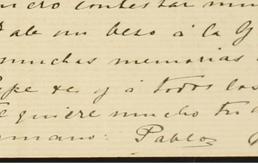 contestar mu
Dale un beso á la G
muchas memorias
Pepe &e y á todos los
te quiere mucho tu
mano: Pablo